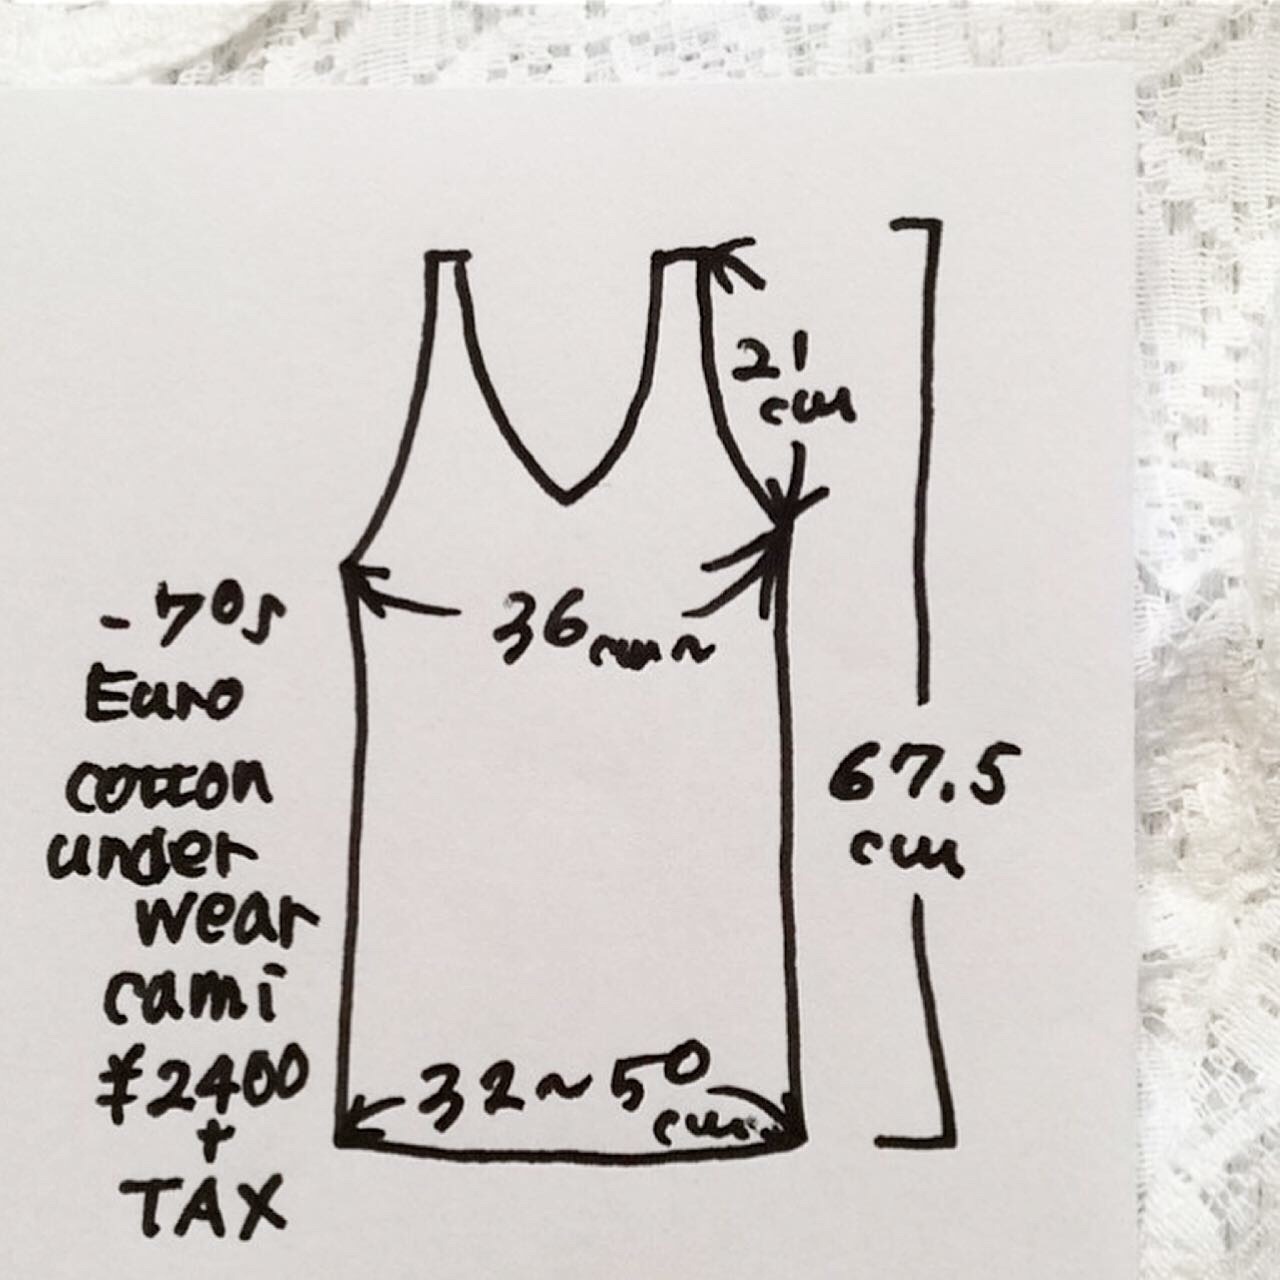 21
cm
36cm~
-70s
Euro
cotton
under
wear
cami
¥2400
+
TAX
67.5
cm
32~50
cm